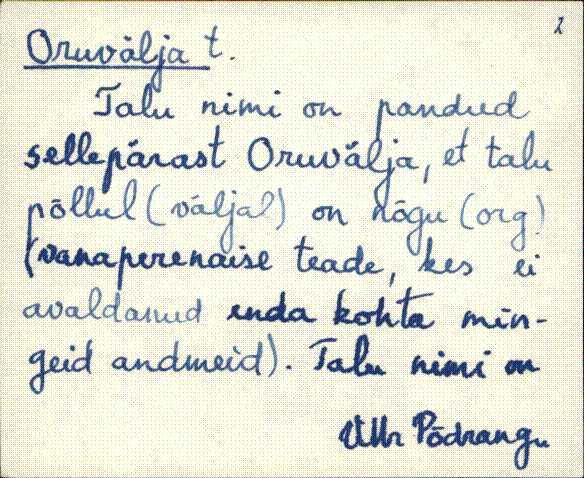 2
Oruvälja t.
Talu nimi on pandud
sellepärast Oruvälja, et talu
põllul (väljal) on nõgu (org)
(vanaperenaise teade, kes ei
avaldanud enda kohta min-
geid andmeid). Talu nimi on
Põdrangu